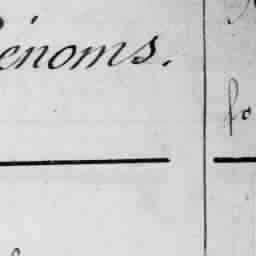 énoms.
fo